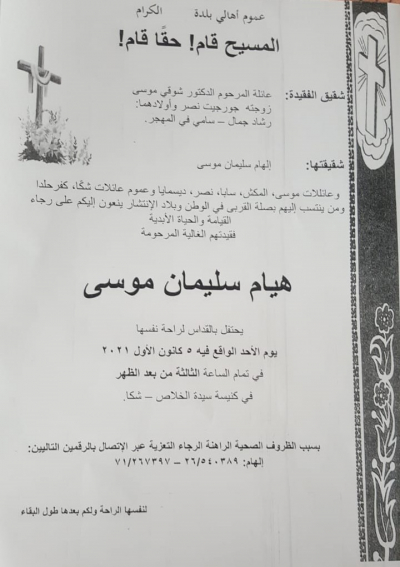 عموم أهالي بلدة الكرام
المسيح قام! حقًا قام!
شقيق الفقيدة: عائلة المرحوم الدكتور شوقي موسى
زوجته جورجيت نصر وأولادهما:
رشاد جمال – سامي في المهجر.
شقيقتها: إلهام سليمان موسى
وعائلات موسى، المكش، سابا، نصر، ديسمايا وعموم عائلات شكّا، كفرحلدا
ومن ينتسب إليهم بصلة القربى في الوطن وبلاد الإنتشار ينعون إليكم على رجاء
القيامة والحياة الأبدية
فقيدتهم الغالية المرحومة
هيام سليمان موسى
يحتفل بالقداس لراحة نفسها
يوم الأحد الواقع فيه ٥ كانون الأول ٢٠٢١
في تمام الساعة الثالثة من بعد الظهر
في كنيسة سيدة الخلاص – شكا.
بسبب الظروف الصحية الراهنة الرجاء التعزية عبر الاتصال بالرقمين التاليين:
إلهام: ٢٦/٥٤٠٣٨٩ – ٧١/٢٦٧٣٩٧
لنفسها الراحة ولكم بعدها طول البقاء